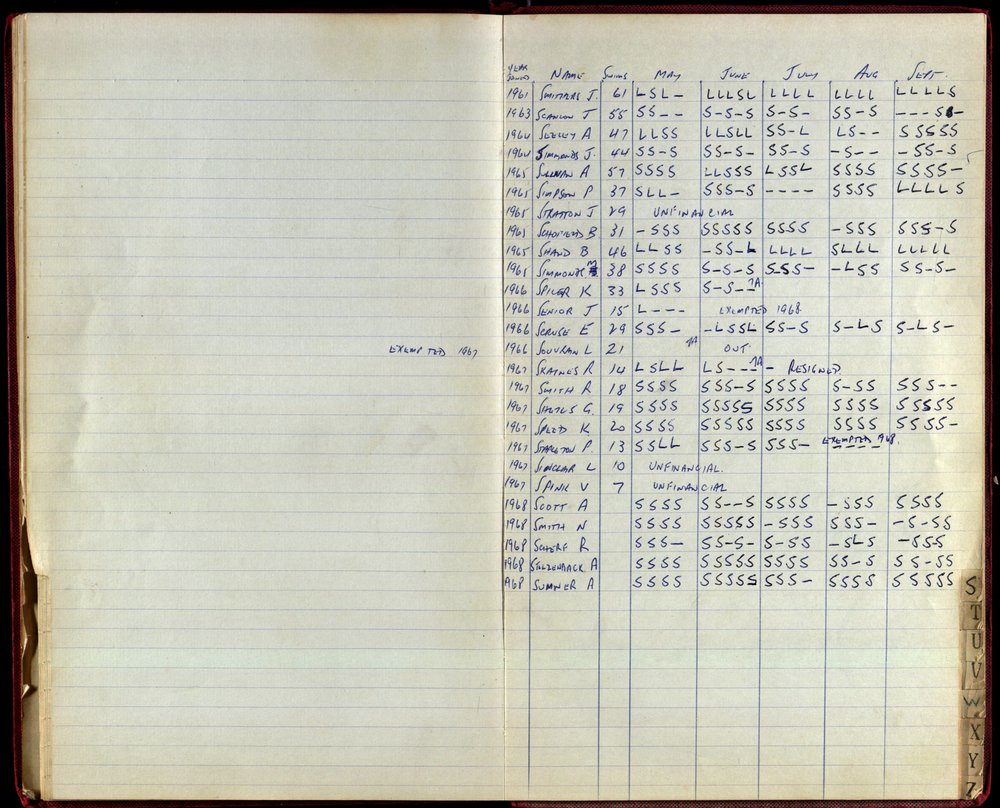 YEAR JOINED NAME SWIMS MAY JUNE JULY AUG SEPT.
1961 SMITHERS J. 61 LSL- LLLSL LLLL LLLL LLLLS
1963 SCANLON J 55 SS-- S-S-S S-S- SS-S ---S-
1964 SEELEY A 47 LLSS LLSLL SS-L LS-- SSSSS
1964 SIMMONDS J. 44 SS-S SS-S- SS-S -S-- -SS-S
1965 SULLMAN A 57 SSSS LLSSS LSSL SSSS SSSS-
1965 SIMPSON P 37 SLL- SSS-S ---- SSSS LLLLS
1965 STRATTON J 29 UNFINANCIAL
1965 SCHOFIELD B 31 -SSS SSSSS SSSS -SSS SSS-S
1965 SHAND B 46 LLSS -SS-L LLLL SLLL LLLLL
1965 SIMMONDS M 38 SSSS S-S-S S-SS- -LSS SS-S-
1966 SPILER K 33 LSSS S-S-- ?A
1966 SENIOR J 15 L---- EXEMPTED 1968
1966 SCRUSE E 29 SSS- -LSSL SS-S S-LS S-LS-
EXEMPTED 1967 1966 SOUVRAN L 21 ?A OUT.
1967 R 14 LSLL LS--- ?A - RESIGNED
1967 SMITH R 18 SSSS SSS-S SSSS S-SS SSS--
1967 G. 19 SSSS SSSSS SSSS SSSS SSSSS
1967 SPEED K 20 SSSS SSSSS SSSS SSSS SSSS-
1967 STAPLETON P. 13 SSLL SSS-S SSS- EXEMPTED 1968.
1967 SINCLAIR L 10 UNFINANCIAL.
1967 SPINK V 7 UNFINANCIAL
1968 SCOTT A SSSS SS--S SSSS -SSS SSSS
1968 SMITH N SSSS SSSSS -SSS SSS- -S-SS
1968 SCHERF R SSS- SS-S- S-SS -SLS -SSS
1968 A SSSS SSSSS SSSS SS-S SS-SS
1968 SUMNER A SSSS SSSSS SSS- SSSS SSSSS
S
T
U
V
W
X
Y
Z